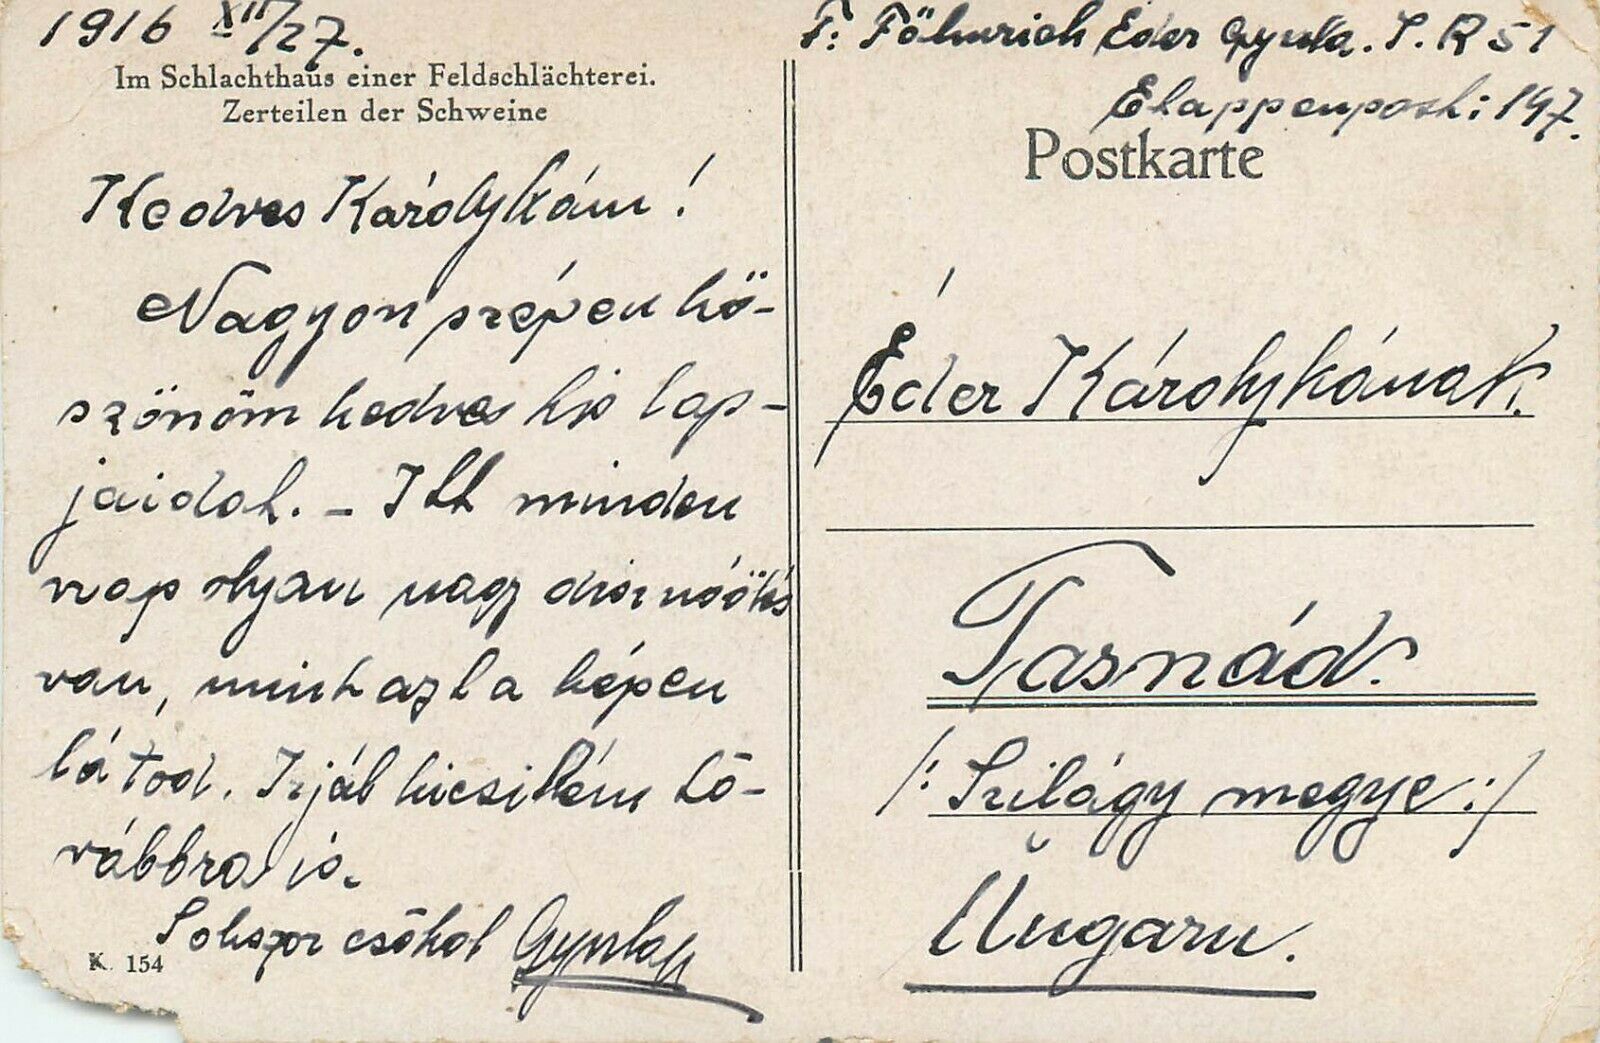 1916 XII/27.
Im Schlachthaus einer Feldschlächterei.
Zerteilen der Schweine
Kedves Károlykám!
Nagyon szépen kö-
szönöm kedves kis lap-
jaidat. - Itt minden
nap olyan nagy disznóölés
van, mint azt a képen
látod. Irjál kicsikém to-
vábbra is.
Sokszor csókol Gyula
K. 154
F: Föhnrich Éder Gyula. I. R 51
Etappenpost: 197.
Postkarte
Éder Károlykának.
Tasnád.
/: Szilágy megye :/
Ungarn.